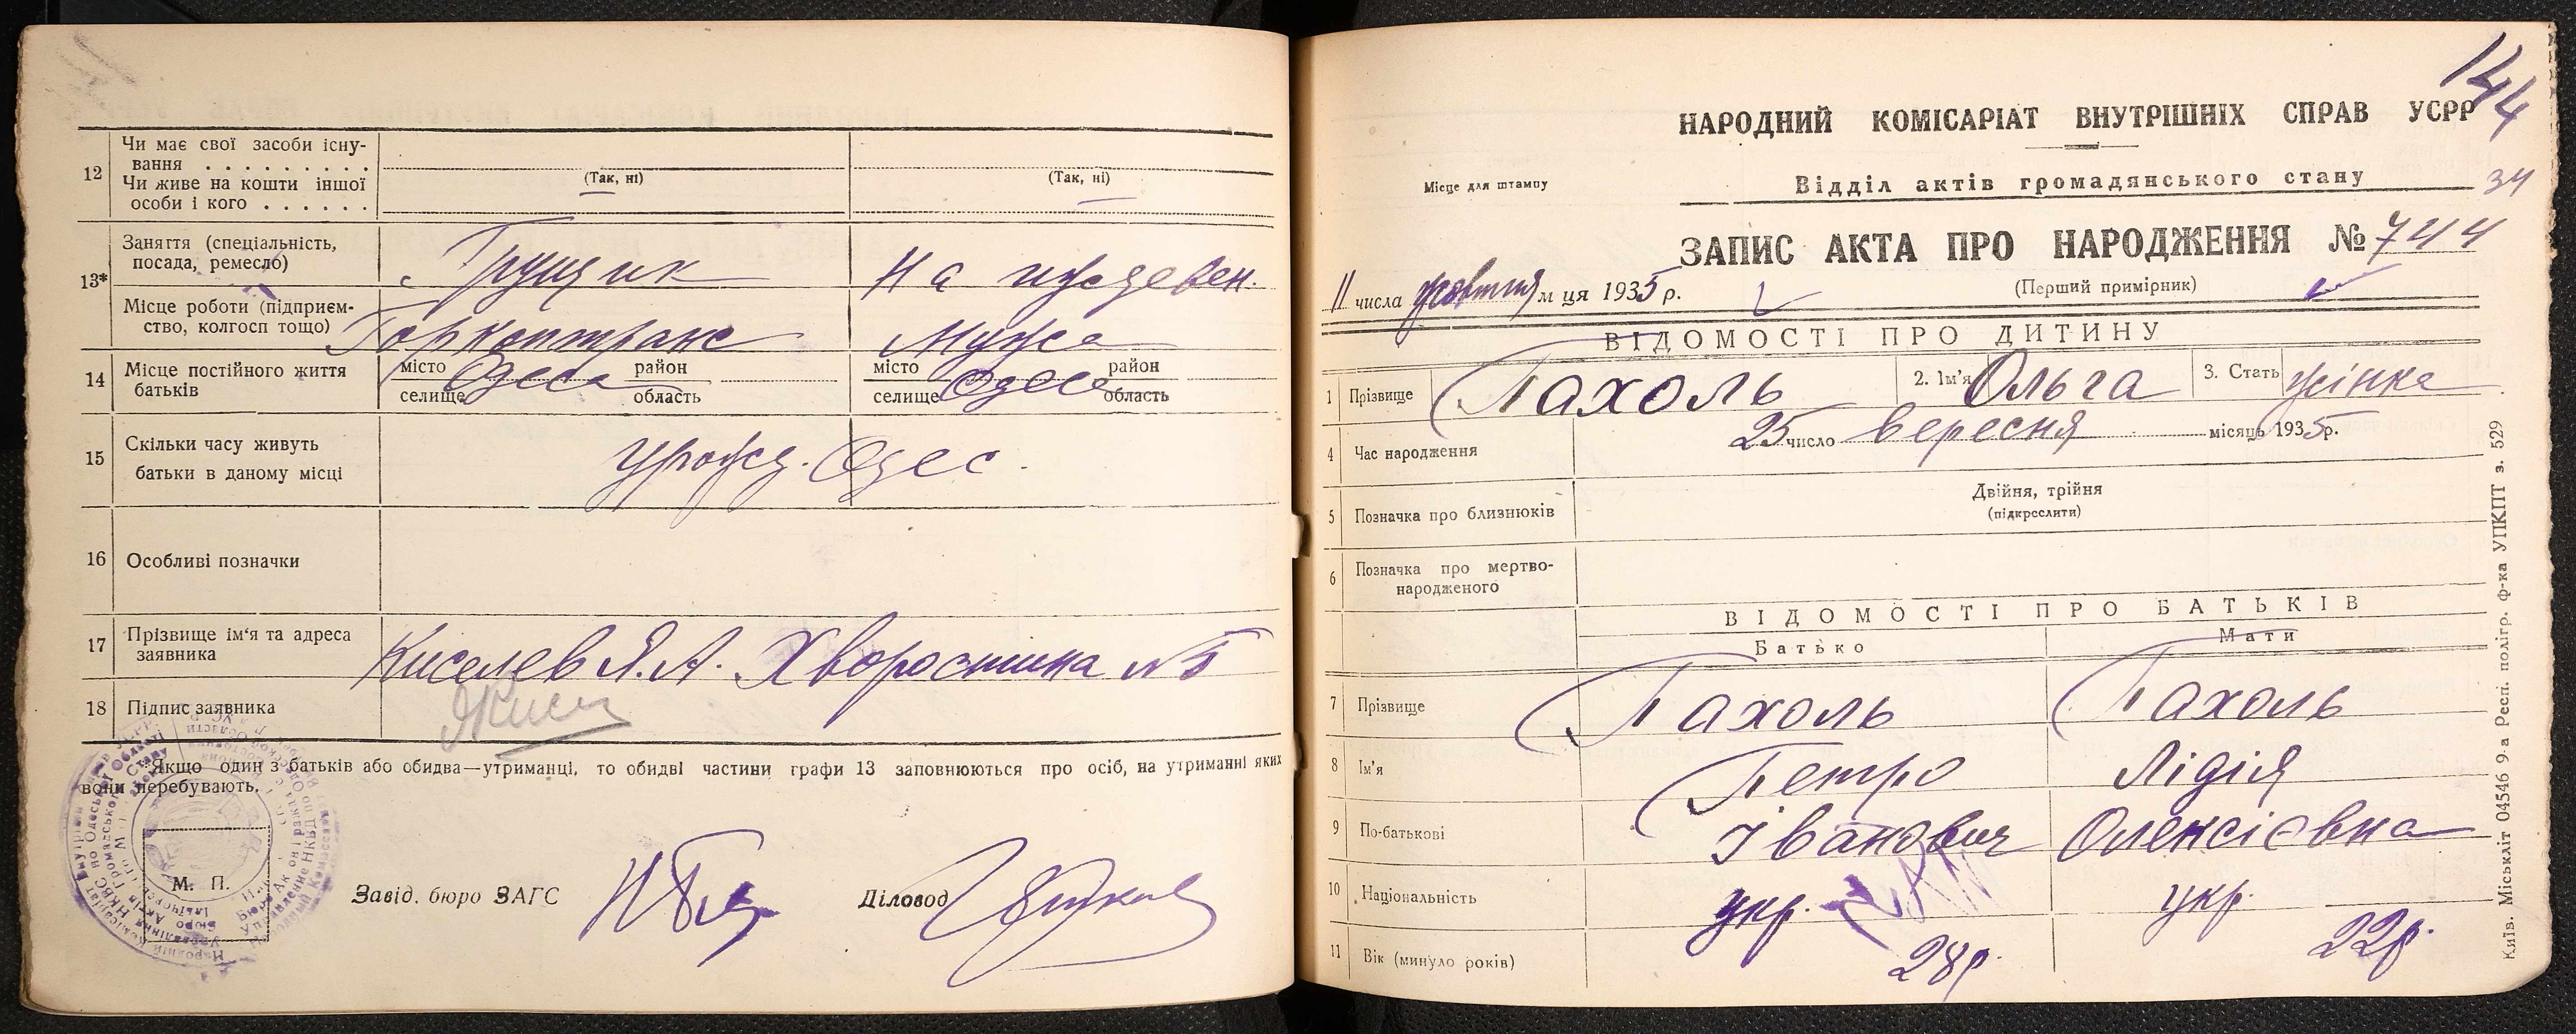 12 Чи має свої засоби існу-
вання . . . . . . . . .
Чи живе на кошти іншої
особи і кого . . . . . .
(Так, ні) (Так, ні)
13* Заняття (спеціальність,
посада, ремесло) Грущик На иждевен.
Місце роботи (підприєм-
ство, колгосп тощо) Горконтранс Мужа
14 Місце постійного життя
батьків
місто Одеса район місто Одеса район
селище область селище область
15 Скільки часу живуть
батьки в даному місці
урожд. Одес.
16 Особливі позначки
17 Прізвище ім'я та адреса
заявника Киселев Я. А. Хворостина №5
18 Підпис заявника ЯКисел
*Якщо один з батьків або обидва—утриманці, то обидві частини графи 13 заповнюються про осіб, на утриманні яких
вони перебувають.
М. П.
Завід. бюро ЗАГС Діловод
144
НАРОДНИЙ КОМІСАРІАТ ВНУТРІШНІХ СПРАВ УСРР
Місце для штампу
Відділ актів громадянського стану 34
ЗАПИС АКТА ПРО НАРОДЖЕННЯ № 744
11 числа жовтня м ця 1935 р. (Перший примірник)
ВІДОМОСТІ ПРО ДИТИНУ
1 Прізвище Пахоль 2. Ім'я Ольга 3. Стать жінка
4 Час народження 25 число вересня місяць 1935р.
5 Позначка про близнюків Двійня, трійня
(підкреслити)
6 Позначка про мертво-
народженого
ВІДОМОСТІ ПРО БАТЬКІВ
Батько Мати
7 Прізвище Пахоль Пахоль
8 Ім'я Петро Лідія
9 По-батькові Іванович Олексієвна
10 Національність укр. укр.
11 Вік (минуло років) 28р. 22р.
Київ. Міськліт 04546 9-а Респ. полігр. ф-ка УПКПТ з. 529